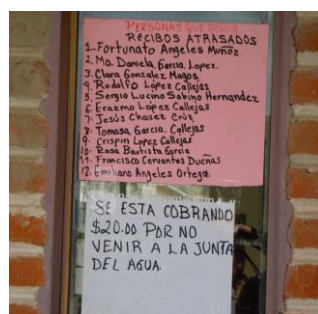 PERSONAS QUE DEBEN
RECIBOS ATRASADOS
1.. Fortunato Angeles Muñoz
2. Ma. Daniela Garcia. Lopez.
3. Clara Gonzalez Magos.
4. Rodolfo López Callejas
5. Sergio Lucino Sabino Hernandez
6. Erazmo López Callejas
7. Jesús Chavez Cruz
8. Tomasa Garcia. Callejas
9. Crispin Lopez Callejas
10. Rosa Bautista Garcia
11. Francisco Cervantes Dueñas
12. Emiliano Angeles Ortega.
SE ESTA COBRANDO
$20.00 POR NO
VENIR A LA JUNTA
DEL AGUA.